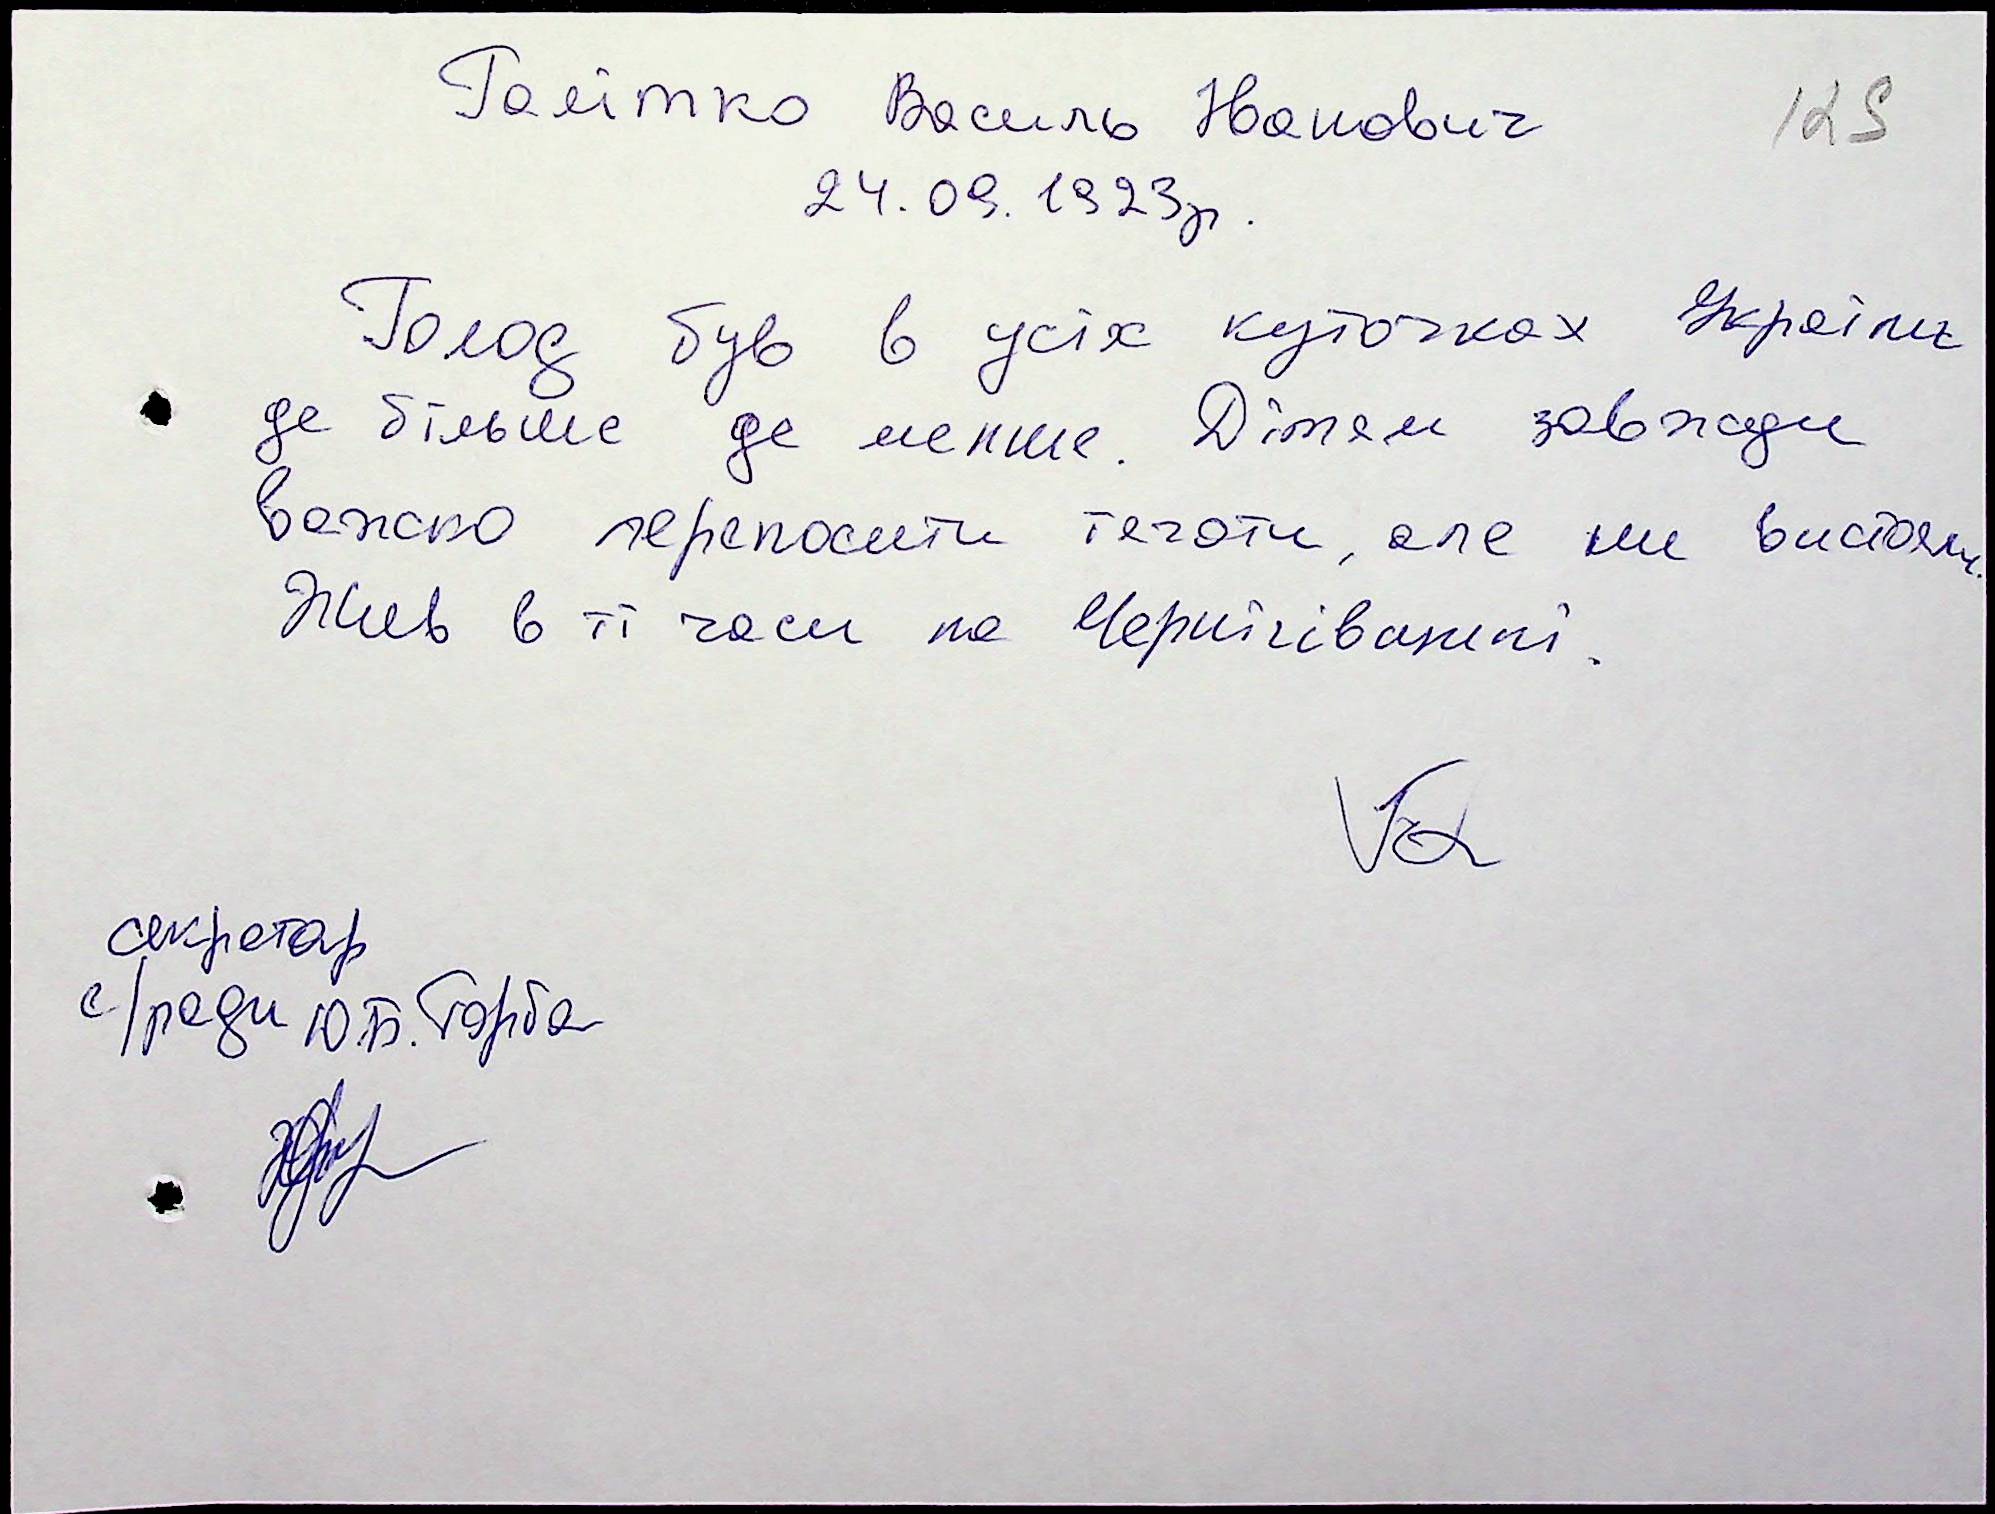 Галітко Василь Іванович
129
24.09.1923р.
Голод був в усіх куточках України
де більше де менше. Дітям завжди
важко переносити тяготи, але ми вистояли.
Жив в ті часи на Чернігівщині.
секретар
с/ради Ю.В. Горба